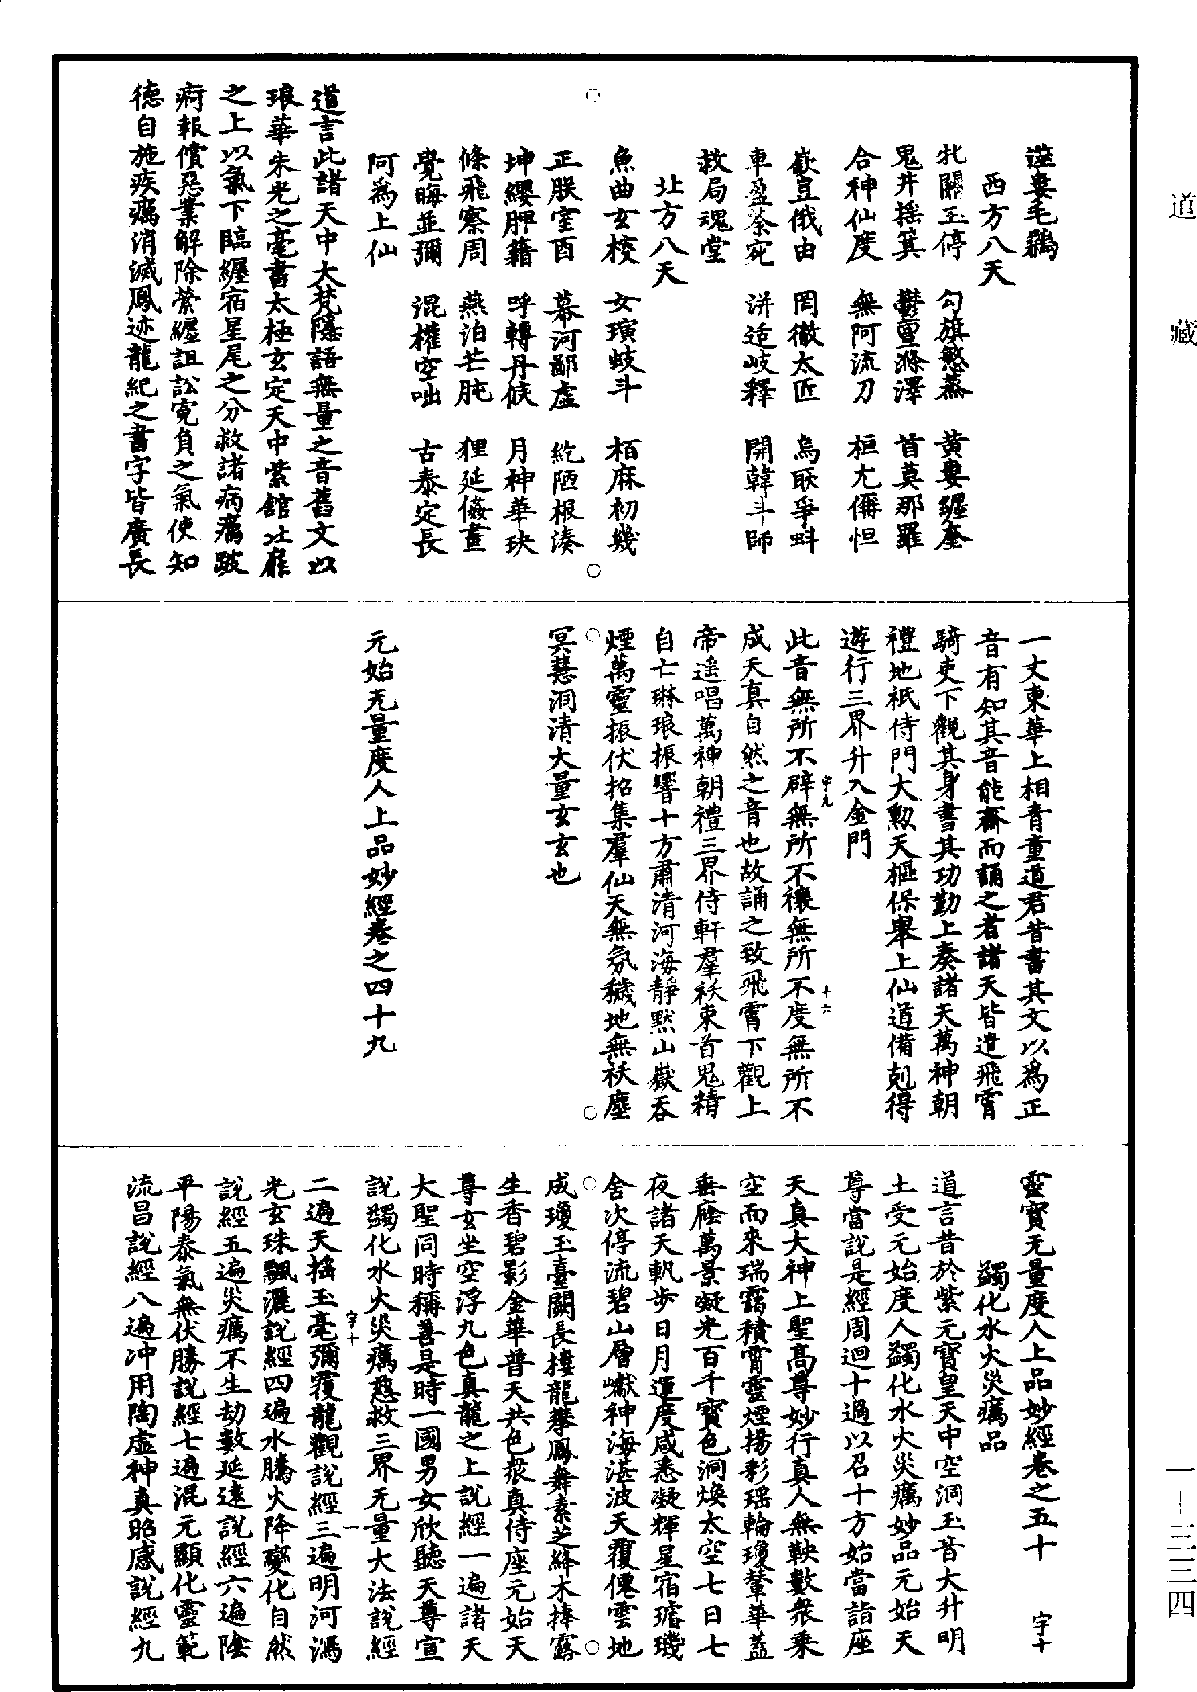 道藏
蓬婁毛鷄
西方八天
北關玉停 勾旗愍蒸 黃婁纏奎
鬼井搖箕 鬱亶滌澤 首莫那羅
合神仙度 無阿流刀 桓尢儞怛
嶔豈俄由 罔徹太匠 烏䀕爭蚪
車盈荼 洴造岐釋 開韓斗師
救局魂堂
北方八天
魚曲玄校 女璌岐斗 栢麻初幾
正朕室酉 幕河鄙虛 紇陋根湊
坤纓胛籍 呼轉丹候 月神華玦
條飛察周 燕泊芒肫 狸延偹畫
覺晦並彌 混權空咄 古泰定長
阿爲上仙
道言此諸天中大梵隱語無量之音舊文以
琅華朱光之毫書太極玄定天中紫館北扉
之上以氣下臨纏宿星尾之分救諸病癘跛
痾報償惡業解除縈纏詛訟寃負之氣使知
德自施疾癘消滅鳳迹龍紀之書字皆廣長
一丈東華上相青童道君昔書其文以爲正
音有知其音能齋而誦之者諸天皆遣飛霄
騎吏下觀其身書其功勤上奏諸天萬神朝
禮地祇侍門大勲天樞保舉上仙道備剋得
遊行三界升入金門
此音無所不辟無所不禳無所不度無所不
成天真自然之音也故誦之致飛霄下觀上
帝遥唱萬神朝禮三界侍軒羣袄束首鬼精
自亡琳琅振響十方肅清河海靜默山嶽吞
煙萬靈振伏招集羣仙天無氛穢地無袄塵
冥慧洞清大量玄玄也
元始无量度人上品妙經卷之四十九
靈寳无量度人上品妙經卷之五十 字十
蠲化水火災癘品
道言昔於紫元寳皇天中空洞玉音大升明
土受元始度人蠲化水火災癘妙品元始天
尊當說是經周迴十過以召十方始當詣座
天真大神上聖高尊妙行真人無鞅數衆乘
空而來瑞靄積霄靈煙揚彩瑶輪瓊輦華蓋
垂廕萬景凝光百千寳色洞煥太空七日七
夜諸天軌步日月運度咸悉凝輝星宿璿璣
舍次停流碧山層巘神海湛波天覆僊雲地
成瓊玉臺闕長棲龍攀鳳舞素芝絳木捧露
生香碧影金華普天共色衆真侍座元始天
尊玄坐空浮九色真龍之上說經一遍諸天
大聖同時稱善是時一國男女欣聽天尊宣
說蠲化水火災癘慈救三界无量大法說經
二遍天搖玉毫彌覆龍觀說經三遍明河馮
光玄珠飄灑說經四遍水騰火降變化自然
說經五遍災癘不生劫數延遠說經六遍陰
平陽泰氣無伏勝說經七遍混元顯化靈範
流昌說經八遍冲用陶虛神真昭感說經九
一—三三四